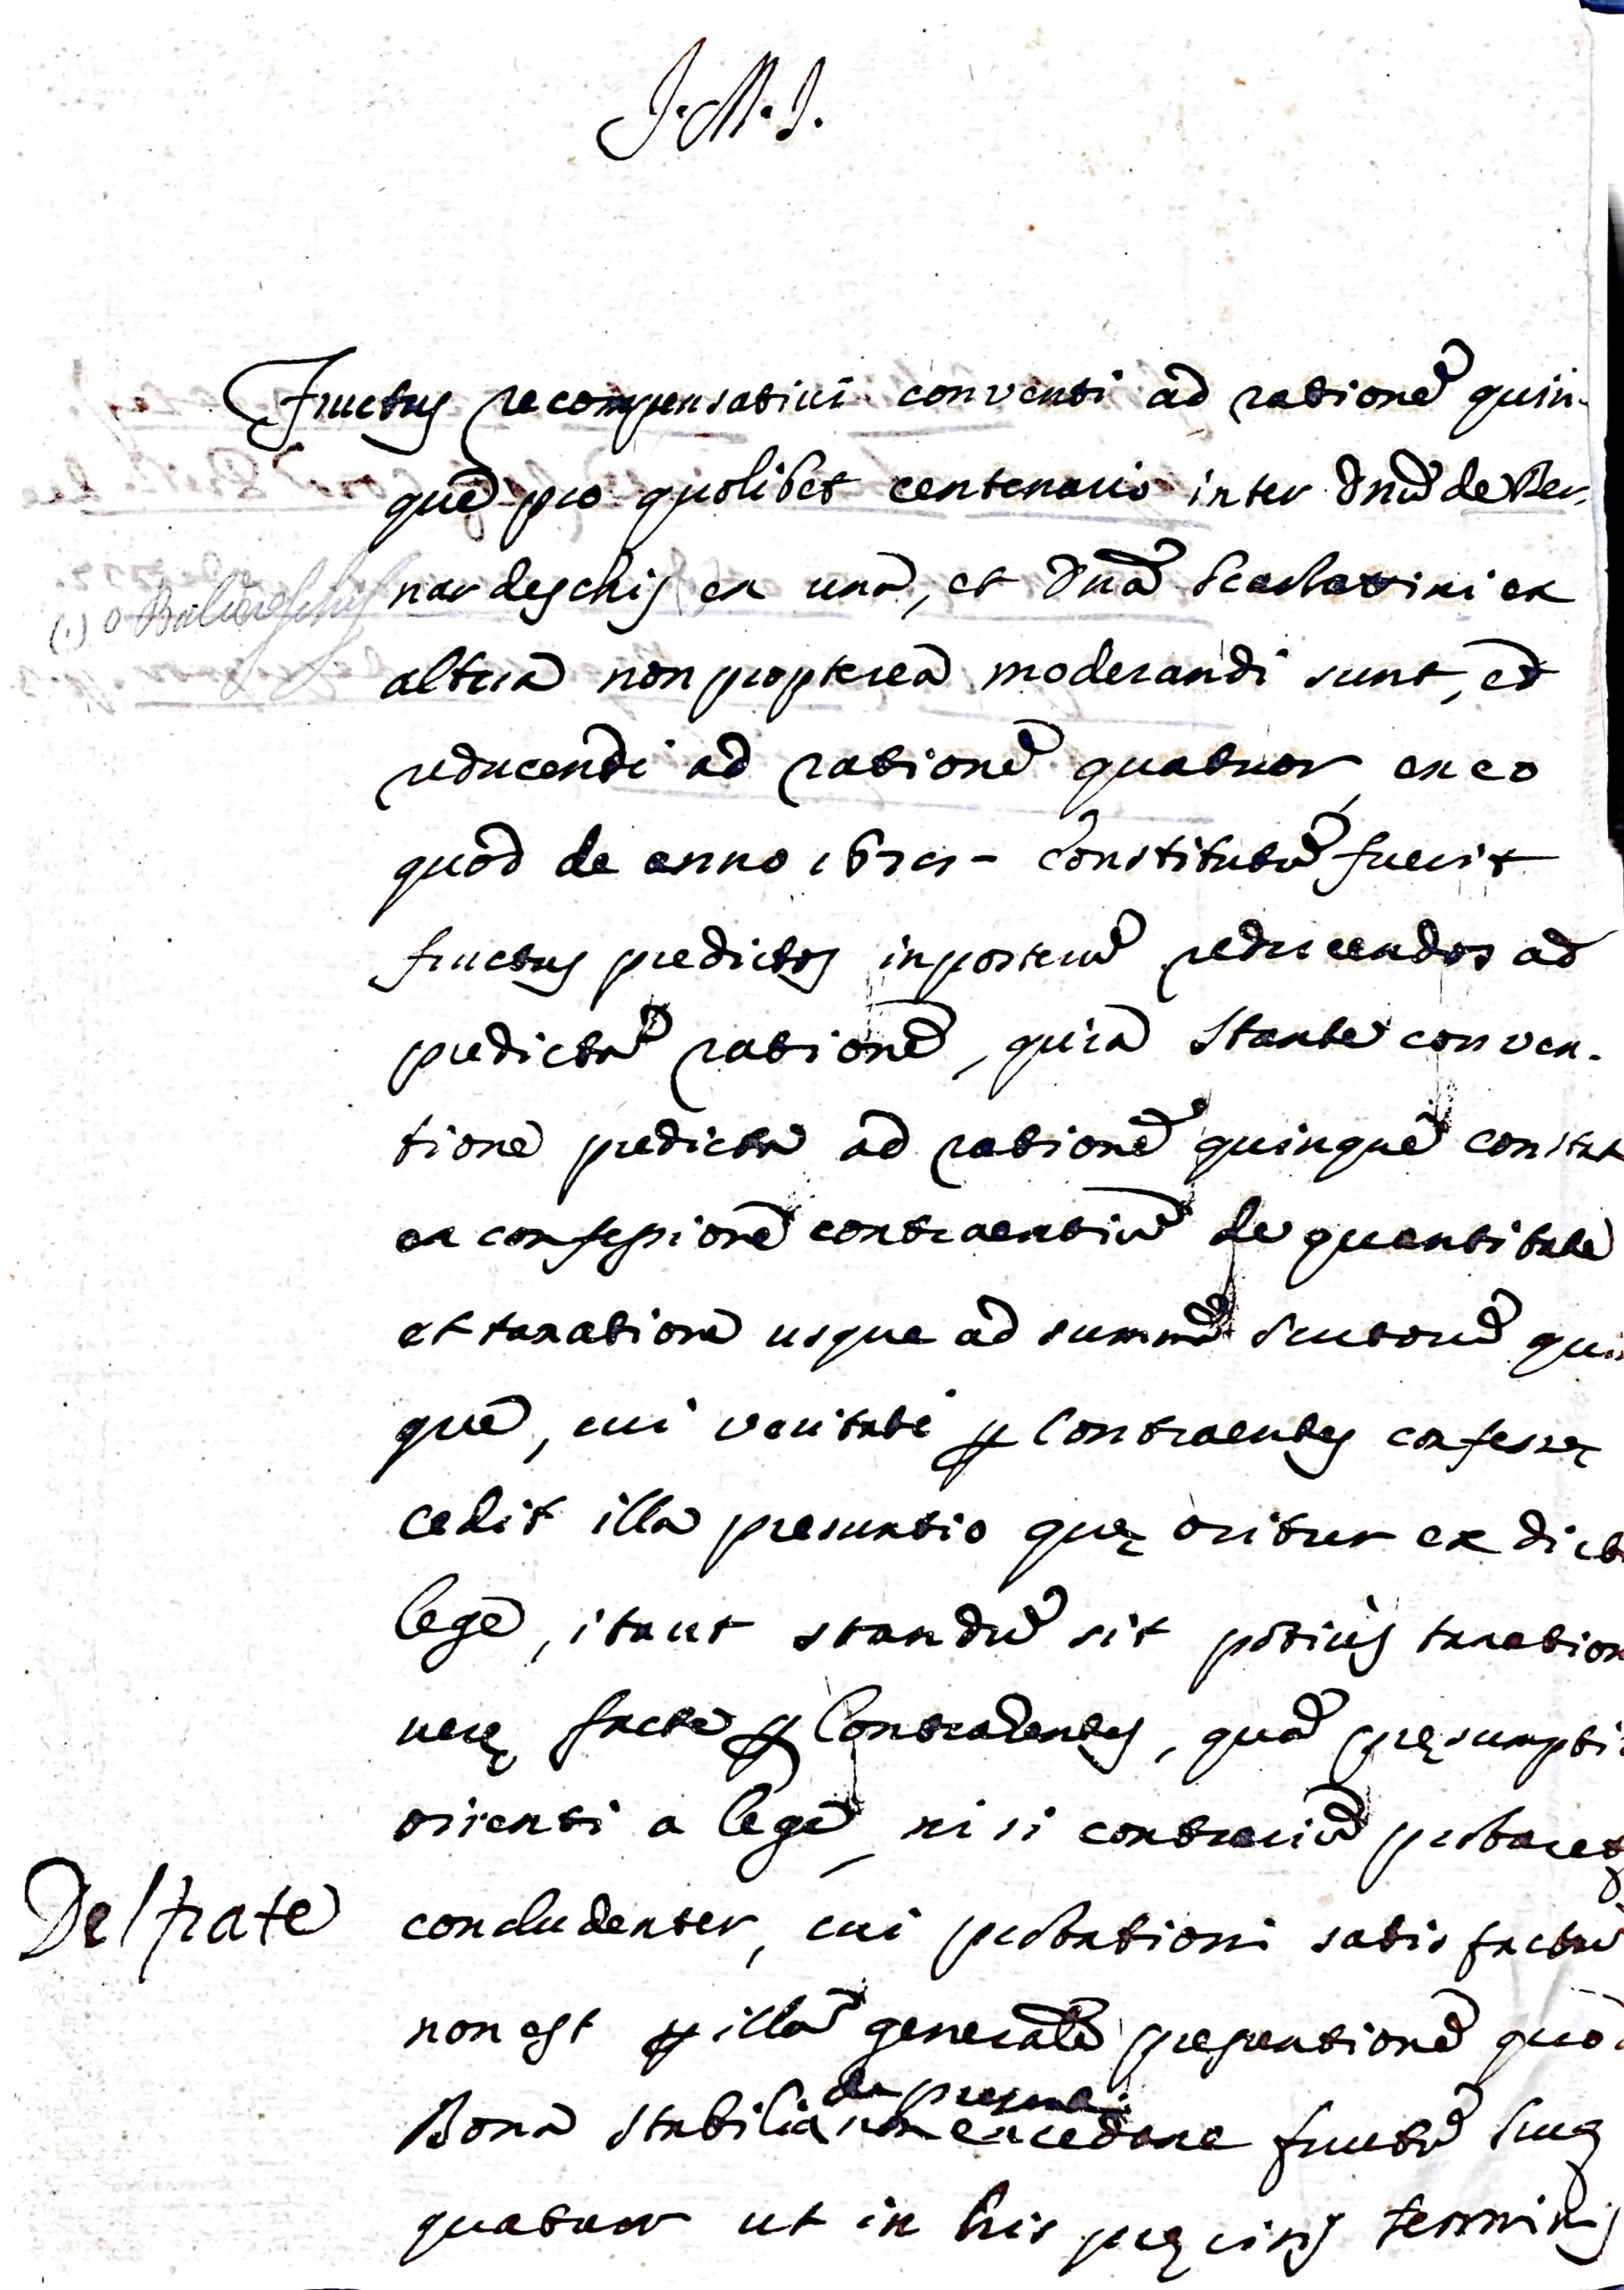 J. M. J.
Fructus recompensativi conventi ad rationẽ quin-
quẽ pro quolibet centenario inter Dnũ de Ber-
nardeschis ex unà, et Dnã Scarlattini ex
alterà non proptereà moderandi sunt, et
reducendi ad rationẽ quatuor ex eo
quòd de anno constitutũ fuerit
fructus predictos in posterũ reducendos ad
predictã rationẽ, quià stante conven-
tione predictà ad rationẽ quinquè constat
ex confessionè contraentiũ de quantitate
et taxatione usque ad summã scutorũ quin
què, cui veritati ꝑ Contraentes confessę
cedit illa presuntio quę oritur ex dicta
legè, itaut standũ sit potius taxation
verę factę ꝑ Contradentes, quã pręsumpti
orienti a legè, nisi contrariũ probaret
Del frate
concludenter, cui probationi satisfactũ
non est ꝑ illã generalẽ presentionẽ quòd
Bonà stabilia non excedere fructũ
de presenti
quatuor ut in his pręcisis terminis